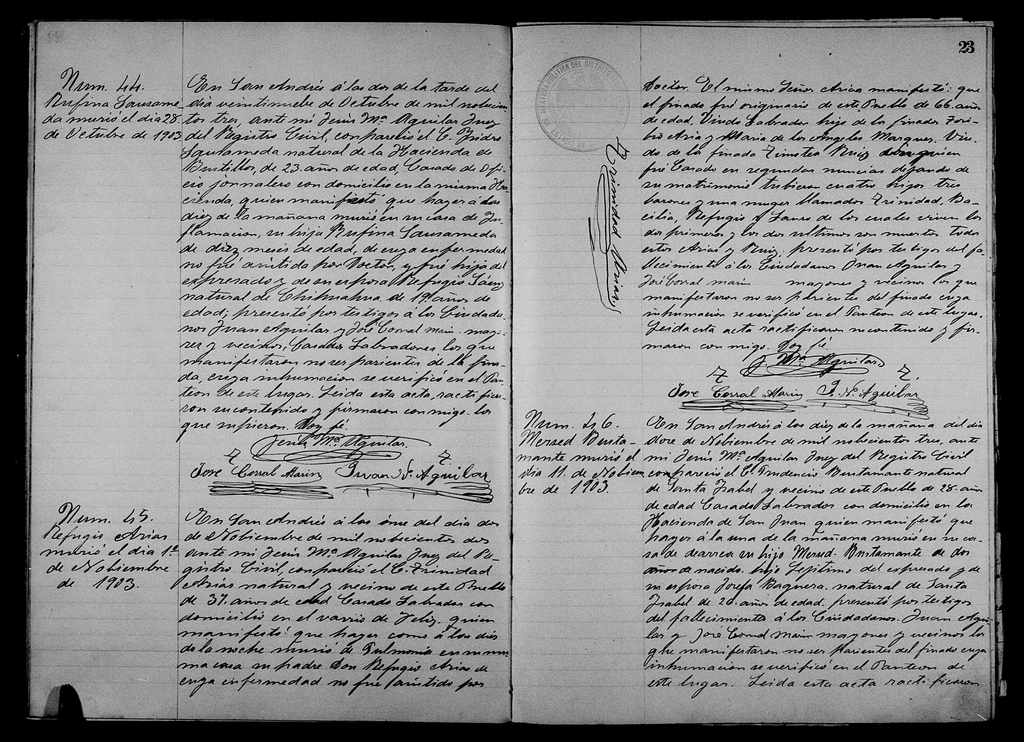 Num. 44.
Rufina Sausame
da murió el dia 28
de Octubre de 1903
En San Andrés á las dos de la tarde del
dia veintinuebe de Octubre de mil nobecien
tos tres, ante mi Jesús Ma. Aguilar Juez
del Registro Civil, compareció el C. Isidro
Sautameda natural de la Hacienda de
Bustillos, de 23 años de edad, Casado de Ofi
cio jornalero con domicilio en la misma Ha
cienda, quien manifestó que hayer á las
diez de la mañana murió en su casa de In
flamacion, su hija Rufina Sausameda
de diez meses de edad, de cuya enfermedad
no fué asistida por Doctor, y fué hija del
expresado y de su esposa Refugio Sáenz
natural de Chihuahua de 19 años de
edad, presentó por testigos á los Ciudada
nos Juan Aguilar y José Corral Marin mayo
res y vecinos, Casados Labradores los que
manifestaron no ser parientes de la fina
da, cuya inhumacion se verificó en el Pan
teon de este lugar. Leida esta acta, ractifica
ron su contenido y firmaron con migo los
que supieron. Doy fé.
Jesús Ma. Aguilar
José Corral Marin Juan N. Aguilar
Num. 45.
Refugio Arias
murió el dia 1o.
de Nobiembre
de 1903.
En San Andrés á las onse del dia dos
de Nobiembre de mil nobecientos dos
ante mi Jesús Ma. Aguilar Juez del Re
gistro Civil, compareció el C. Trinidad
Arias natural y vecino de este Pueblo
de 37 años de edad Casado Labrador con
domicilio en el varrio de Feliz, quien
manifestó que hayer como á las diez
de la noche murió de Pulmonia en su mis
ma casa su padre Don Refugio Arias de
cuya enfermedad no fué asistido por
23
Doctor. El mismo Señor Arias manifestó: que
el finado fué originario de este Pueblo de 66 años
de edad, Viudo Labrador hijo de los finados
Arias y Maria de los Angeles Marques, Viu
do de la finada Timotea Ruiz con quien
fué Casado en segundas nuncias dejando de
su matrimonio tubieron cuatro hijos tres
barones y una muger llamados Trinidad, Ba
cilia, Refugio y Lauro de los cuales viven los
dos primeros y los dos ultimos son muertos todos
estos Arias y Ruiz, presentó por testigos del fa
llecimiento á los Ciudadanos Juan Aguilar y
José Corral marin mayores y vecinos los que
manifestaron no ser parientes del finado cuya
inhumacion se verificó en el Panteon de este lugar.
Leida esta acta ractificaron su contenido y fir
maron con migo. Doy fé
J. Ma. Aguilar
José Corral Marin J. N. Aguilar
Trinidad Arias
Num. 46.
Mersed Busta
mante murió el
dia 11. de Nobiem
bre de 1903.
En San Andrés á las diez de la mañana del dia
doce de Nobiembre de mil nobecientos tres, ante
mi Jesús Ma. Aguilar Juez del Registro Civil
compareció el C. Prudencio Bustamante natural
de Santa Isabel y vecino de este Pueblo de 28 años
de edad Casado Labrador con domicilio en la
Hacienda de San Juan quien manifestó que
hayer á la una de la mañana murió en su ca
sa de diarrea su hijo Mersed Bustamante de dos
años de nacido, hijo Septimo del expresado y de
su esposa Josefa Baquera natural de Santa
Isabel de 20 años de edad, presentó por testigos
del fallecimiento á los Ciudadanos Juan Agui
lar y José Corral Marin mayores y vecinos los
que manifestaron no ser parientes del finado cuya
inhumacion se verificó en el Panteon de
este lugar. Leida esta acta ractificaron